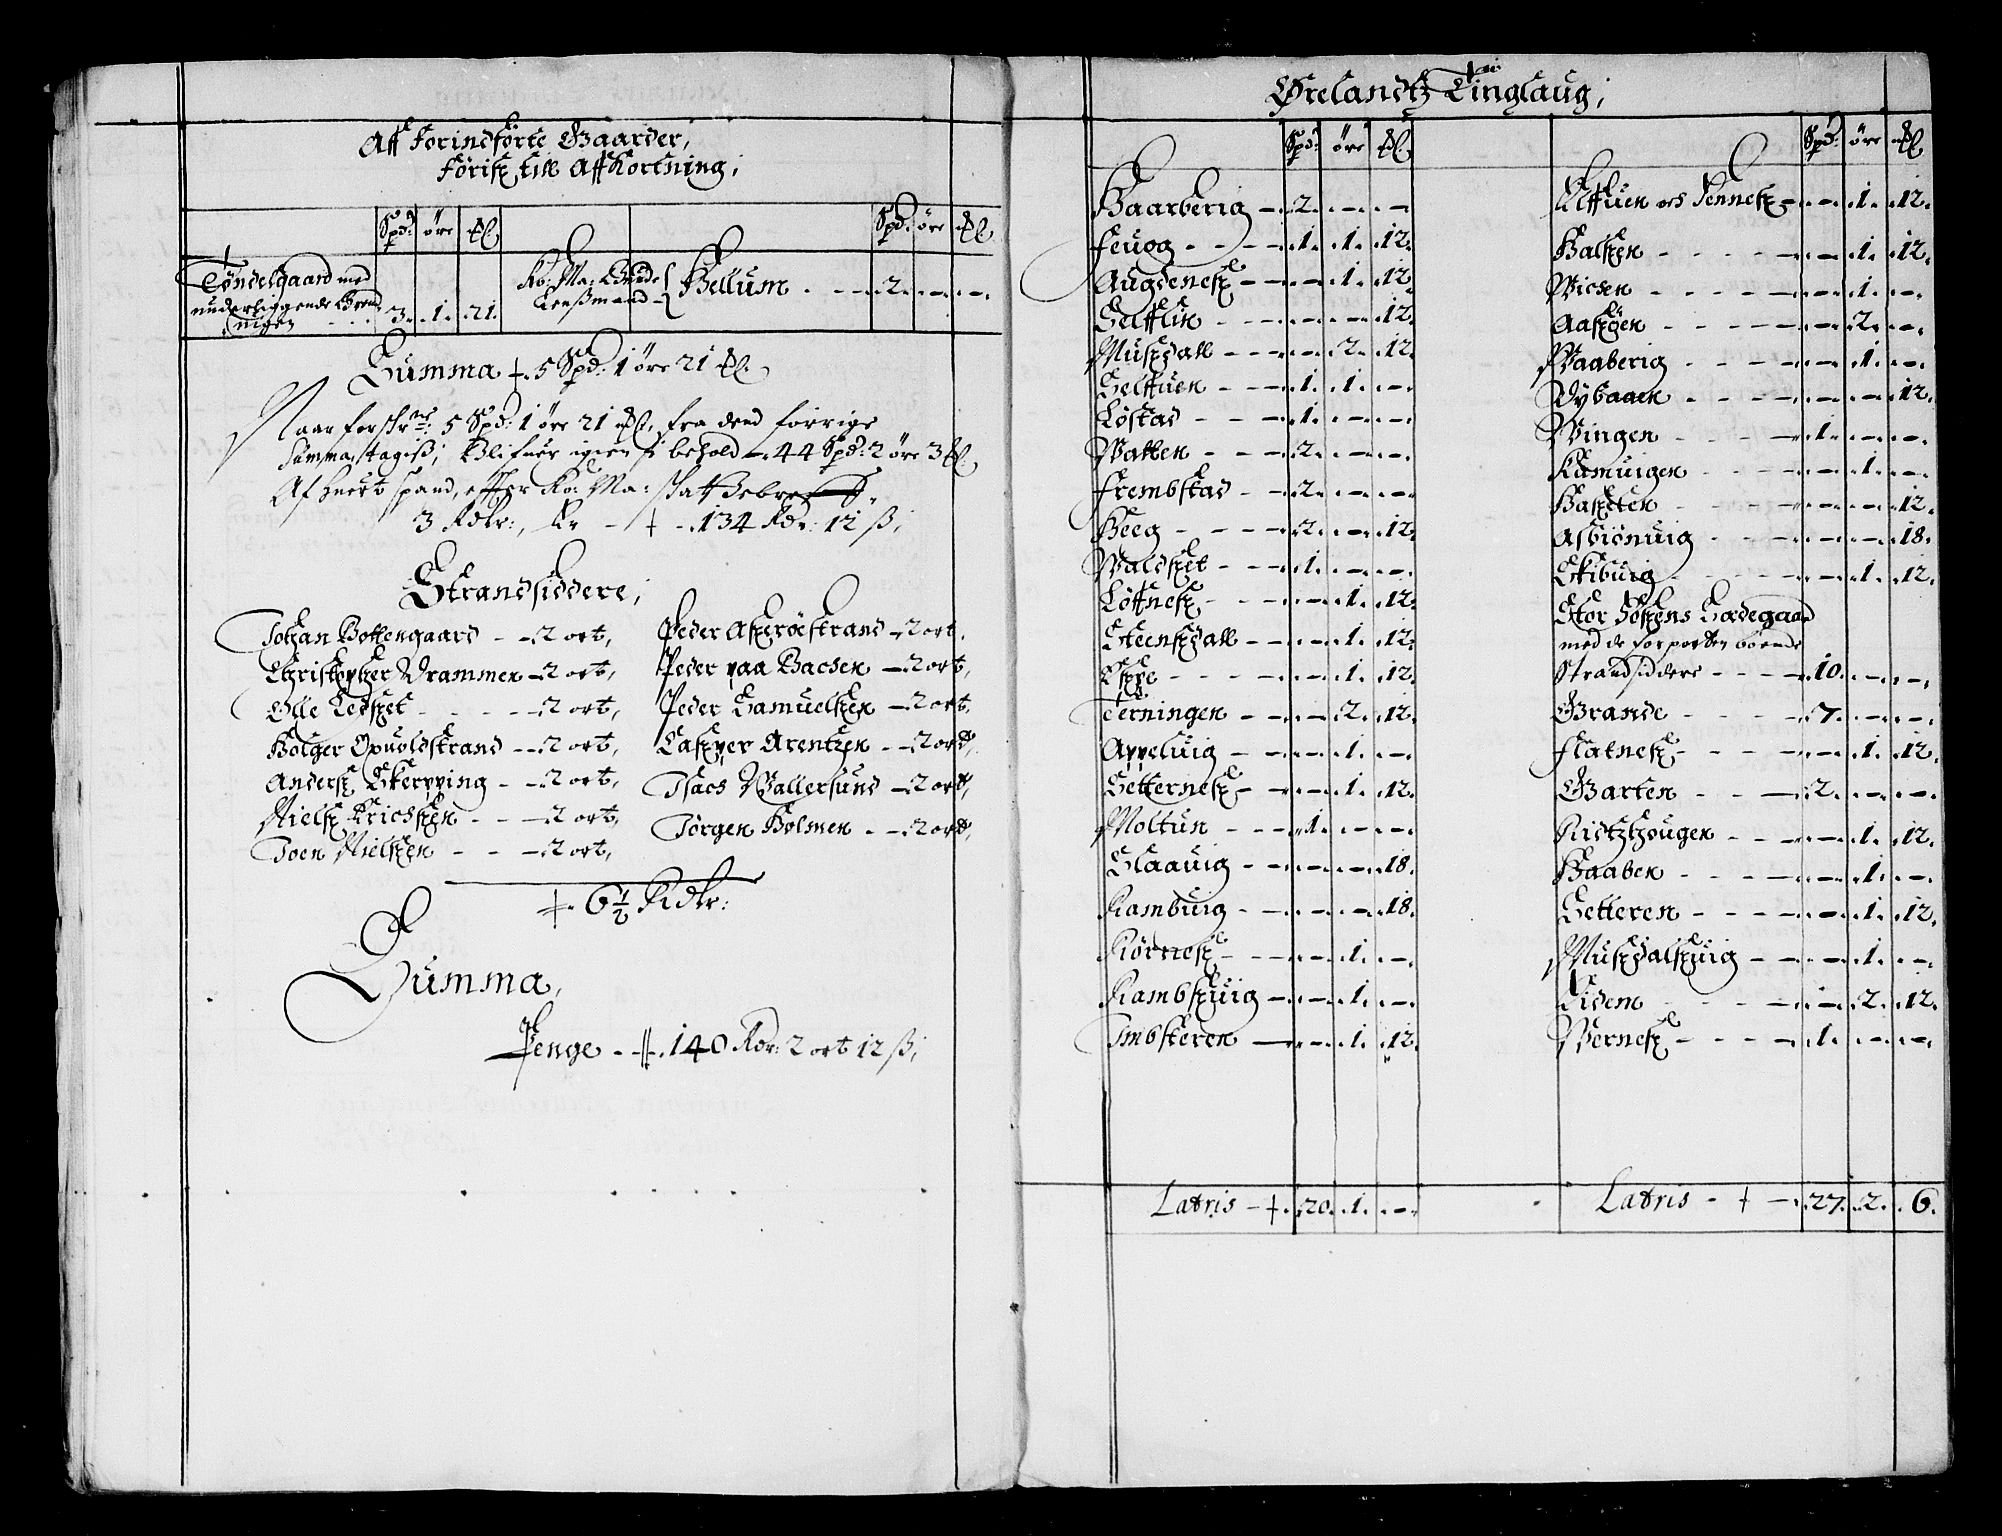 Aff Forindførte Gaarder,
Føris till AffKortning;
Spd: öre
Tøndelgaard med
underliggende
3. 1. 21.
Ko: Ma:
Lenßmand
Bellum - 2. - -
Summa - 5 Spd: 1 öre 21
Naar forskr: 5 Spd: 1 öre 21, fra dend forrige
Summa tagiß; Blifuer igien i behold - 44 Spd: 2 öre 3
Af huert spand, effter Ko: Ma: skatt
3 Rdlr:, Er - 134 Rdr: 12 ß;
Strandsiddere;
Johan Bottengaard - 2 ort,
Christopher Drammen - 2 ort,
Olle Ledset - 2 ort,
Holger Opuoldstrand - 2 ort,
Anders Skerpping - 2 ort,
Niels Erichsen - 2 ort,
Joen Nielsen - 2 ort,
Peder Asserøestrand - 2 ort.
Peder paa Bachen - 2 ort,
Peder Samuelsen - 2 ort,
Casper Arentzen - 2 ort,
Isach Vallersund - 2 ort,
Jörgen Holmen - 2 ort,
6 1/2 Rdlr:
Summa,
Penge - 140 Rdr: 2 ort 12 ß;
Ørelandtz Tinglaug;
Spd: öre
Haarberig - 2. - -
Feuog - 1. 1. 12.
Augdenes - - 1. 12.
Selfflin - - - 12.
Musdall - - 2. 12.
Selffuen - 1. 1. -
Løstad - 1. - -
Vatten - 2. - -
Frembstad - 2. - -
Heeg - 2. - 12.
Valdset - 1. - -
Løffnes - - 1. 12.
Steensdall - - 1. 12.
Espe - - 1. 12.
Terningen - - 2. 12.
Appeluig - - 1. -
Setternes - - 1. 12.
Moltun - 1. - -
Slaauig - - - 18.
Rambuig - - - 18.
Rörnes - - 1. -
Rambsuig - - 1. -
Imbsteren - - 1. 12.
Latris - 20. 1. -
Spd: öre
Elffuen och Tennes - - 1. 12.
Balsen - - 1. 12.
Vichen - - 1. -
Aasgen - - 2. -
Vaaberig - - 1. -
Dybaaen - - - 12.
Vingen - 1. - -
Kamuigen - - 1. -
Hasselen - - - 12.
Asbiönuig - - - 18.
Skibuig - - 1. 12.
Stor Fosens Sædegaard
med de for porten boende
Strandsiddere - 10. - -
Grande - 7. - -
Flatnes - - 1. 12.
Garten - 2. - -
Ridtzhougen - - 1. 12.
Haaben - - 1. -
Setteren - - 1. 12.
Musdalsuig - - 1. -
Eidem - - 2. 12.
Vernes - 1. - -
Latris - 27. 2. 6.